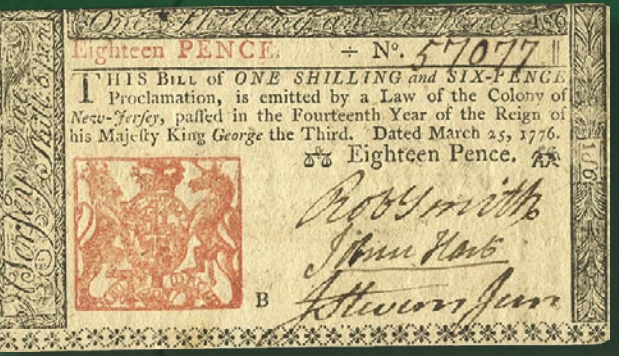 One Shilling and Six Pence. 1s6
Eighteen PENCE. ÷ Nº. 57077
THIS BILL of ONE SHILLING and SIX-PENCE
Proclamation, is emitted by a Law of the Colony of
New-Jersey, paſſed in the Fourteenth Year of the Reign of
his Majeſty King George the Third. Dated March 25, 1776.
Eighteen Pence.
Rob Smith
John Hart
J Stevens Jun
B
N Jersey One Shill. & 6 pen
1s6